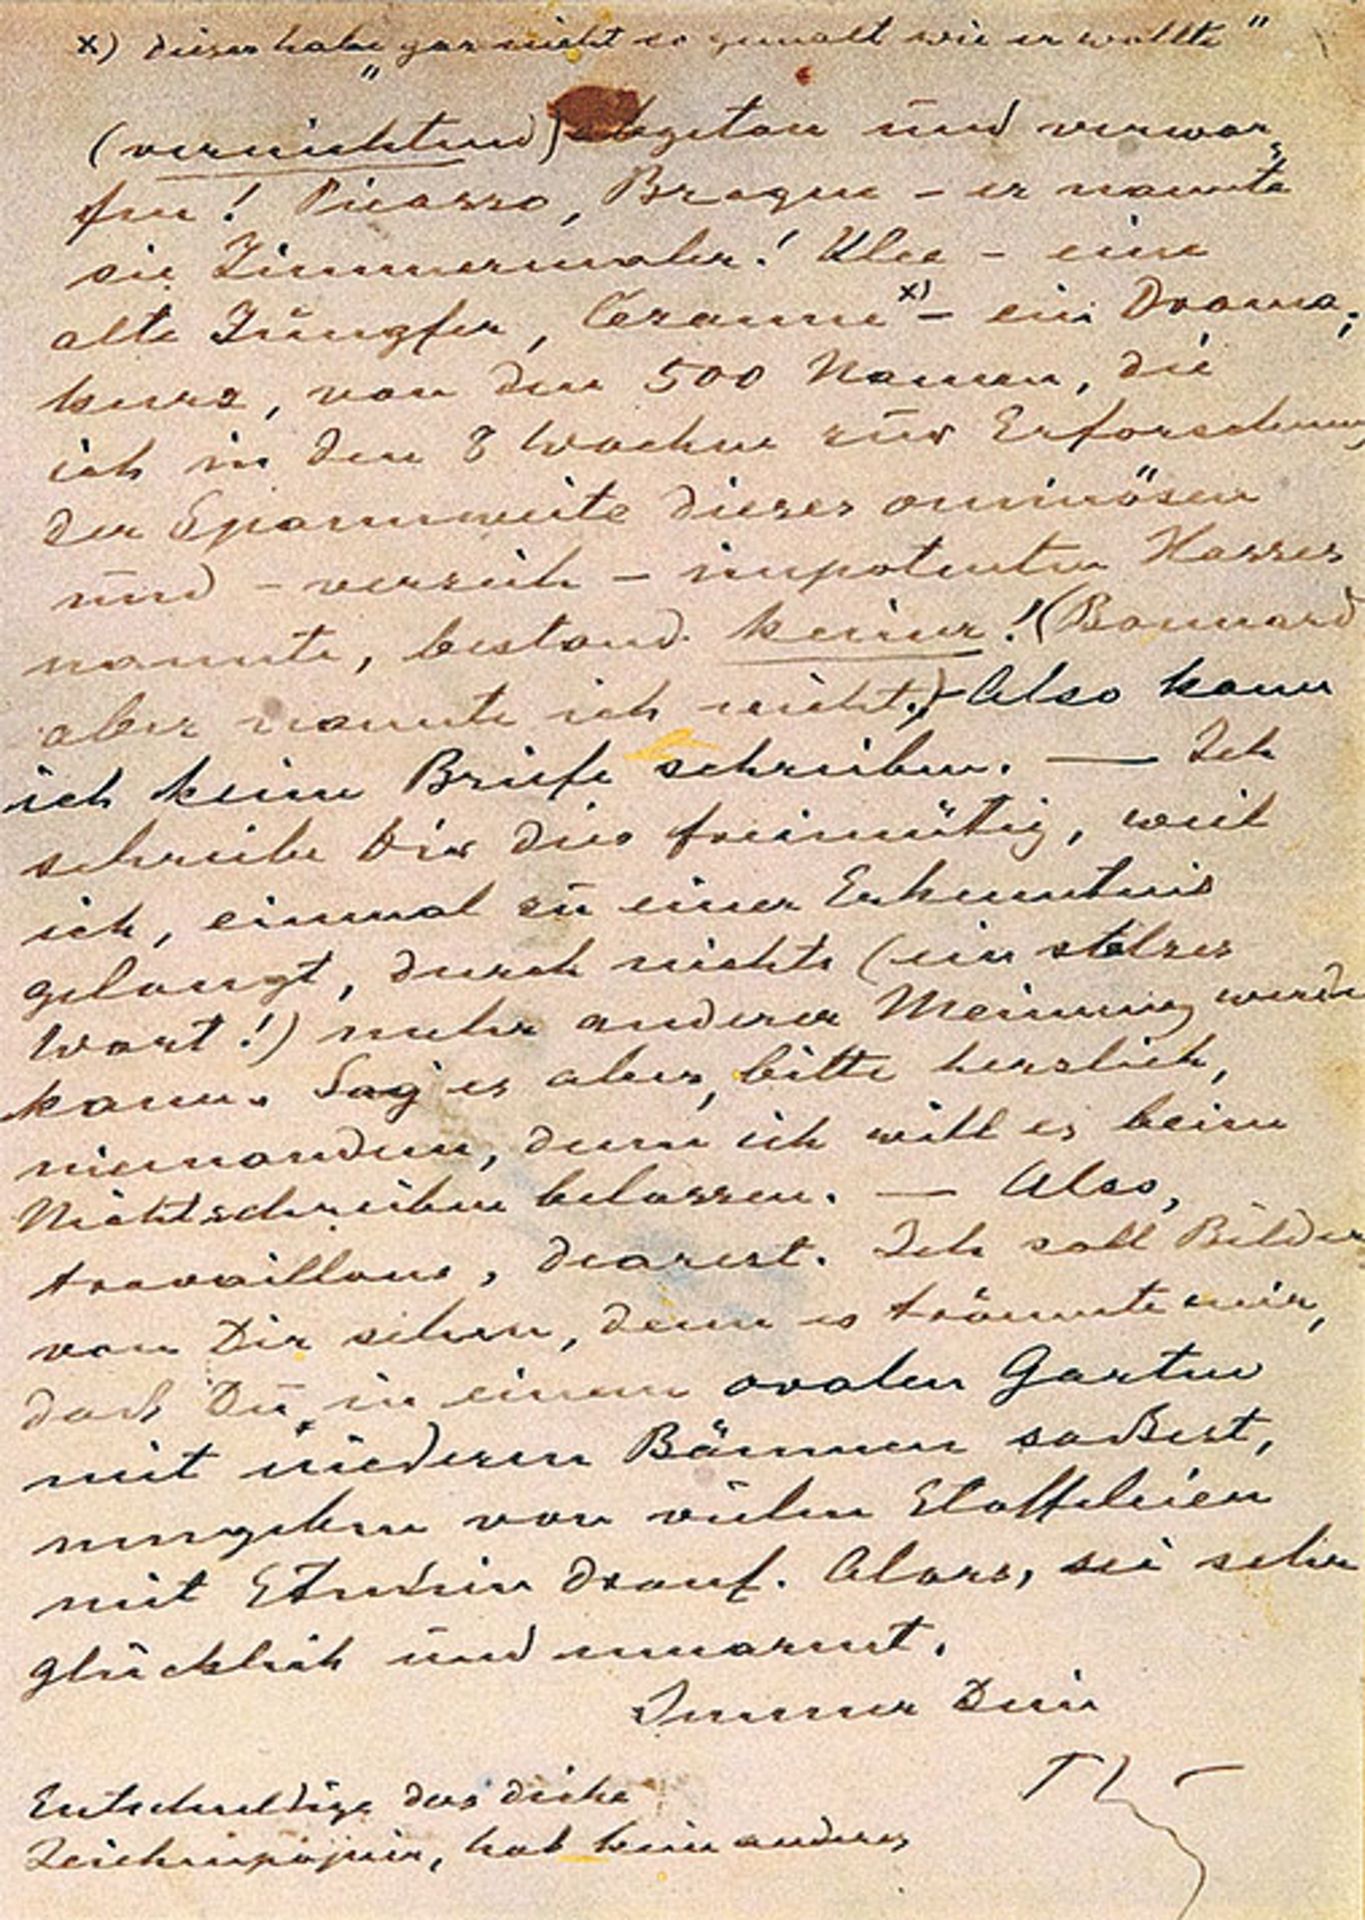 x) dieser habe "gar nicht so gemalt wie er wollte"
(vernichtend) abgetan und verwor-
fen! Picasso, Braque – er nannte
sie Zimmermaler! Klee – eine
alte Jungfer, Cezanne x) – ein Drama;
kurz, von den 500 Namen, die
ich in den 8 Wochen zur Erforschung
der Spannweite dieses ominösen
und – verzeih – impotenten Hasses
nannte, bestand keiner! (Bonnard
aber nannte ich nicht.) – Also kann
ich keine Briefe schreiben. — Ich
schreibe Dir dies freimütig, weil
ich, einmal zu einer Erkenntnis
gelangt, durch nichts (ein stolzes
Wort!) mehr anderer Meinung werden
kann. Sag es aber, bitte herzlich,
niemandem, denn ich will es beim
Nichtschreiben belassen. — Also,
travaillons, dearest. Ich soll Bilder
von Dir sehen, denn es träumte mir,
dass Du in einem ovalen Garten
mit niederen Bäumen saßest,
umgeben von vielen Staffeleien
mit Studien drauf. Alors, sei sehr
glücklich und umarmt.
Immer Dein
Entschuldige das dicke
Zeichenpapier, hab kein anderes